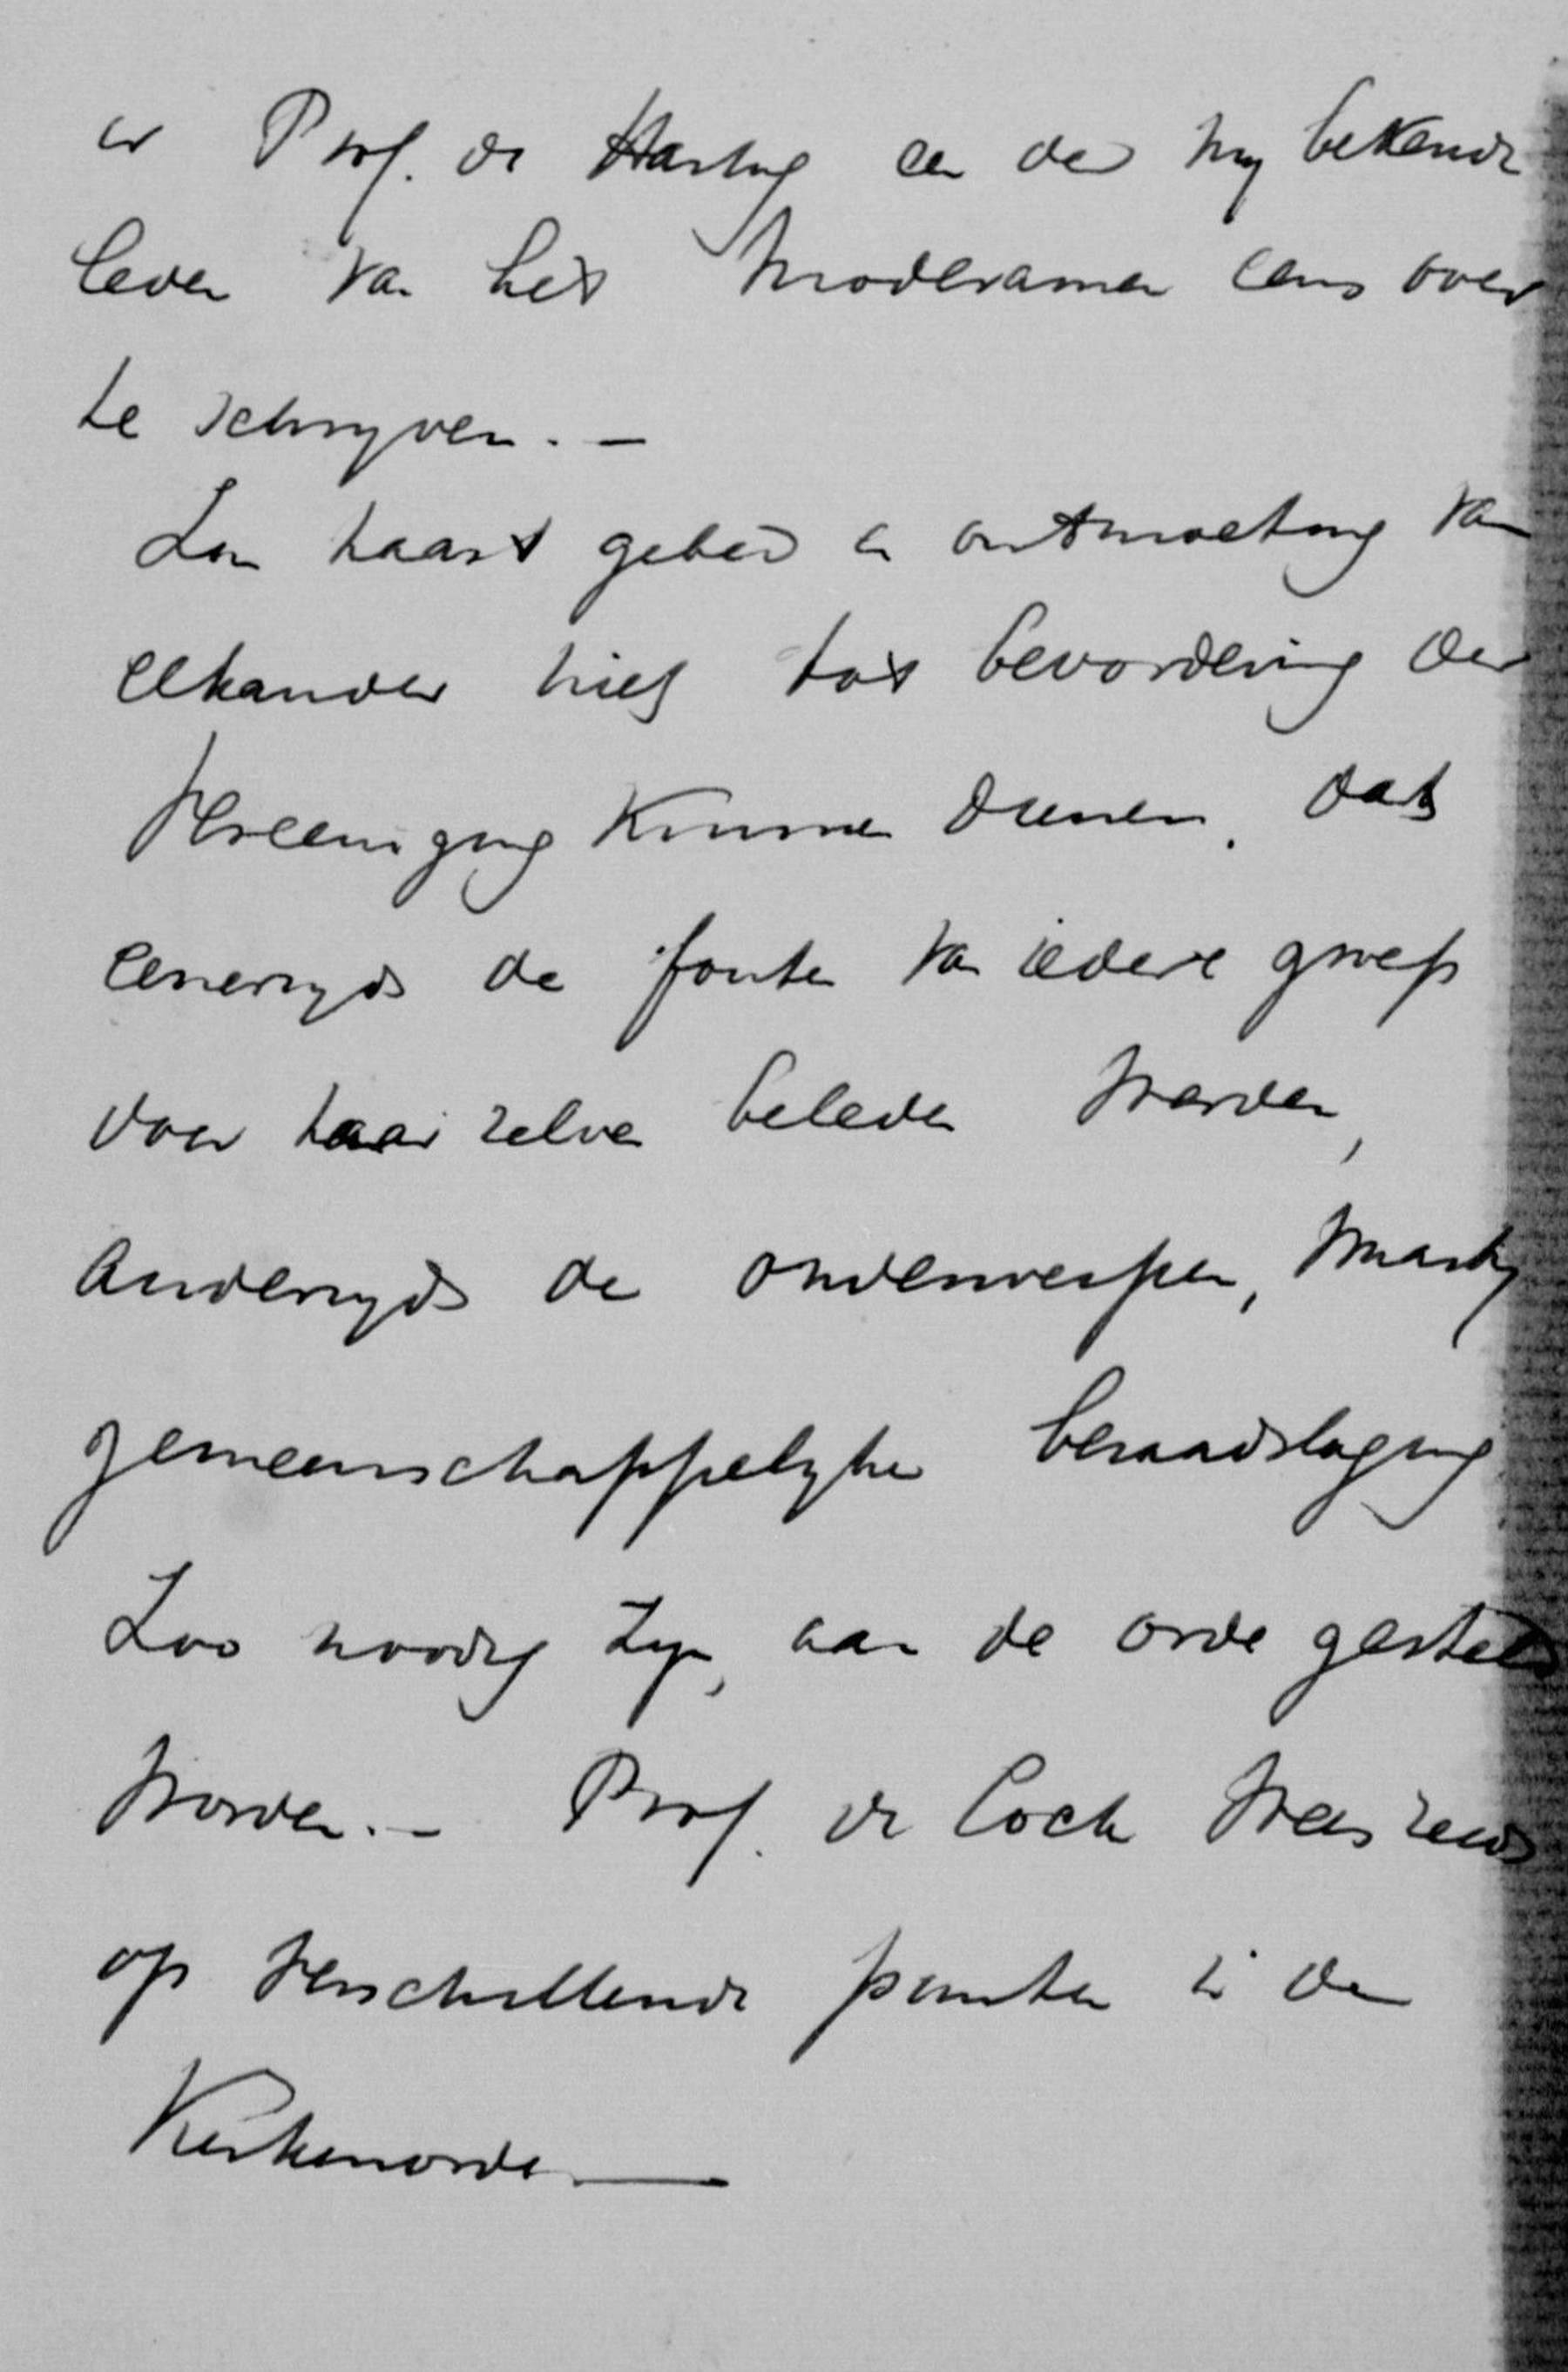 er Prof. de Hartog en de mij bekende
leden van het Moderamen eens over
te schrijven. —
Zou naast gebed en ontmoeting van
elkander niet tot bevordering der
Vereeniging kunnen dienen, dat
eenerzijds de fouten van iedere groep
door haar zelve beleden werden,
anderzijds de onderwerpen, waarbij
gemeenschappelijke beraadslaging
zoo noodig zijn, aan de orde gesteld
worden. — Prof. de Cock wees reeds
op verschillende punten in de
Kerkenorde —